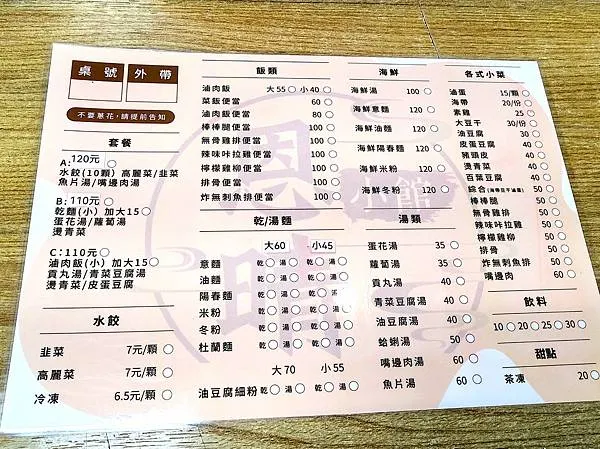 桌號 外帶
不要蔥花，請提前告知
套餐
A:120元 ○
水餃(10顆) 高麗菜/韭菜
魚片湯/嘴邊肉湯
B:110元 ○
乾麵(小) 加大15○
蛋花湯/蘿蔔湯
燙青菜
C:110元 ○
滷肉飯(小) 加大15○
貢丸湯/青菜豆腐湯
燙青菜/皮蛋豆腐
水餃
韭菜 7元/顆 ○
高麗菜 7元/顆 ○
冷凍 6.5元/顆 ○
飯類
滷肉飯 大55○ 小40○
菜飯便當 60 ○
滷肉飯便當 80 ○
棒棒腿便當 100 ○
無骨雞排便當 100 ○
辣味咔拉雞便當 100 ○
檸檬雞柳便當 100 ○
排骨便當 100 ○
炸無刺魚排便當 100 ○
乾/湯麵
大60 小45
意麵 乾○湯○ 乾○湯○
油麵 乾○湯○ 乾○湯○
陽春麵 乾○湯○ 乾○湯○
米粉 乾○湯○ 乾○湯○
冬粉 乾○湯○ 乾○湯○
杜蘭麵 乾○湯○ 乾○湯○
大70 小55
油豆腐細粉 乾○ 湯○ 乾○ 湯○
海鮮
海鮮湯 100 ○
海鮮意麵 120 ○
海鮮油麵 120 ○
海鮮陽春麵 120 ○
海鮮米粉 120 ○
海鮮冬粉 120 ○
湯類
蛋花湯 35 ○
蘿蔔湯 35 ○
貢丸湯 40 ○
青菜豆腐湯 40 ○
油豆腐湯 40 ○
蛤蜊湯 50 ○
嘴邊肉湯 60 ○
魚片湯 60 ○
各式小菜
滷蛋 15/顆○
海帶 20/份○
素雞 25 ○
大豆干 30/份○
油豆腐 30 ○
皮蛋豆腐 40 ○
豬頭皮 40 ○
燙青菜 40 ○
百葉豆腐 40 ○
綜合(海帶豆干滷蛋) 50 ○
棒棒腿 50 ○
無骨雞排 50 ○
辣味咔拉雞 50 ○
檸檬雞柳 50 ○
排骨 50 ○
炸無刺魚排 50 ○
嘴邊肉 60 ○
飲料
10○20○25○30○
甜點
茶凍 20○
恩
小館